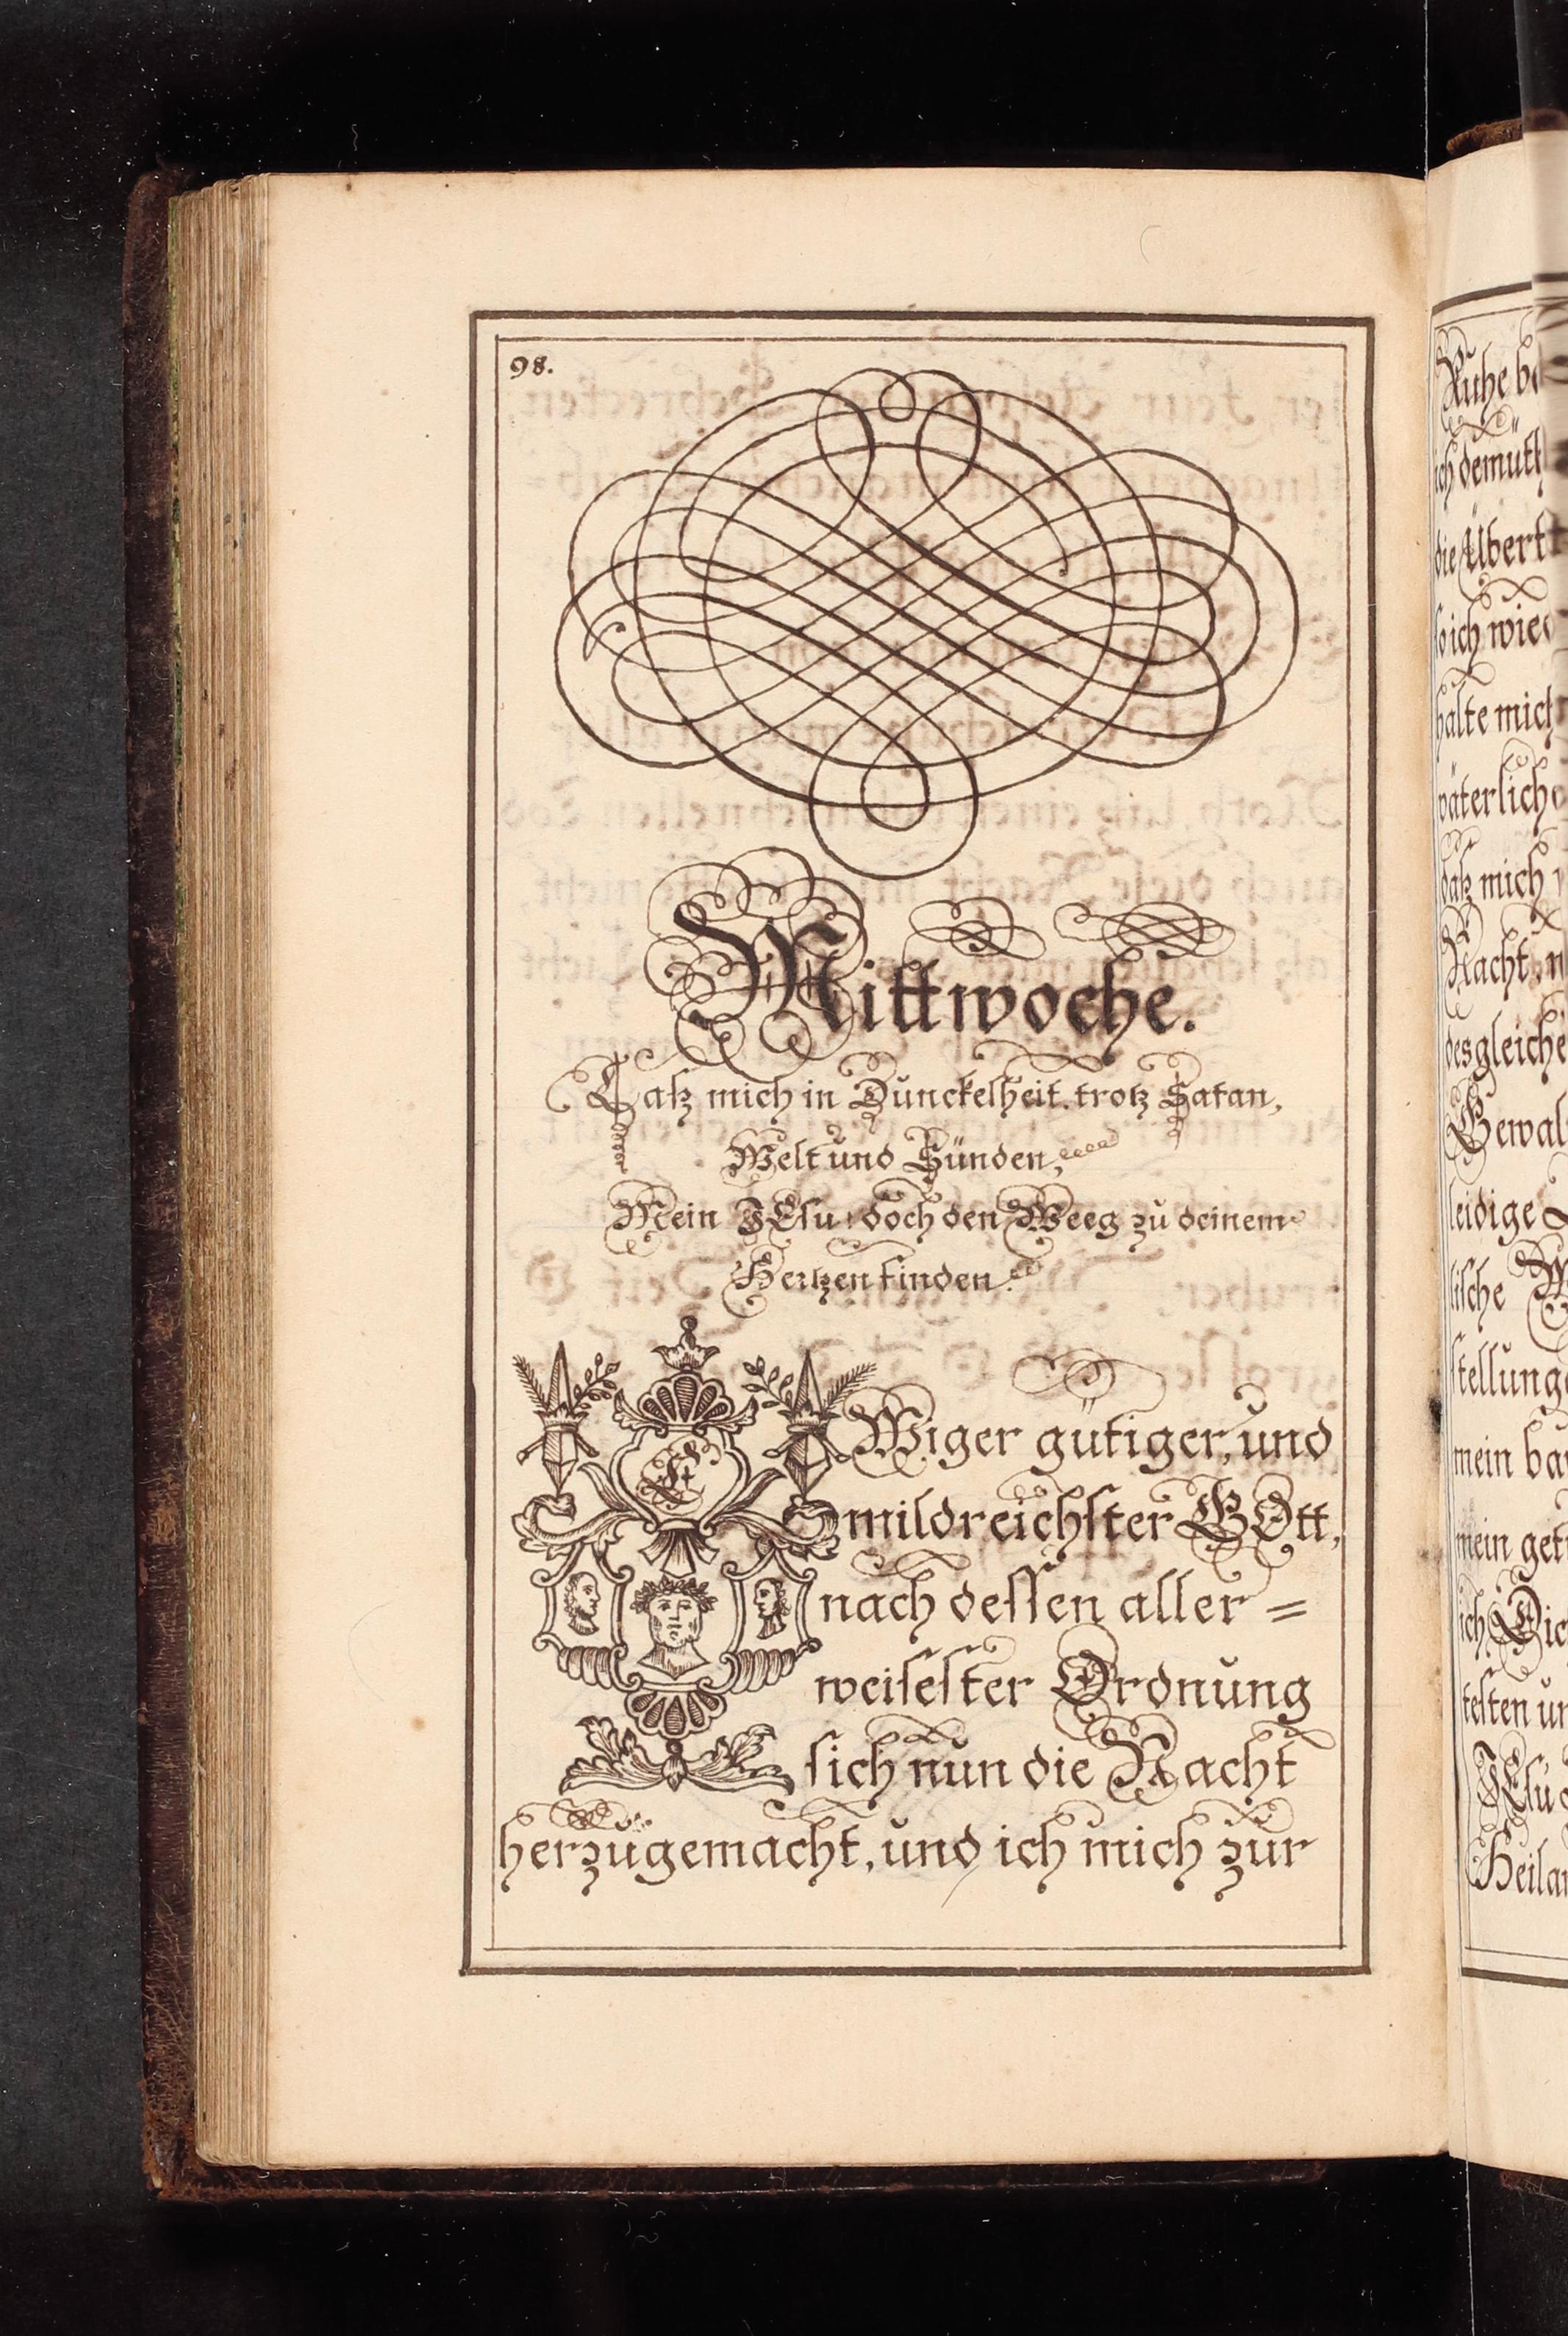 98.
Mittwoche.
Laß mich in Dunckelheit, trotz Satan,
Welt und Sünden,
Mein JEsu! doch den Weeg zu deinem
Hertzen finden.
EWiger gütiger, und
mildreichster GOtt,
nach dessen aller=
weisester Ordnung
sich nun die Nacht
herzugemacht, und ich mich zur
Ruhe be
ich demüth
die Ubert
so ich wied
halte mich
väterlich
daß mich
Nacht
desgleiche
Gewal
leidige
lische
stellung
mein ba
mein get
ich Dic
testen un
JEsu
Heilan